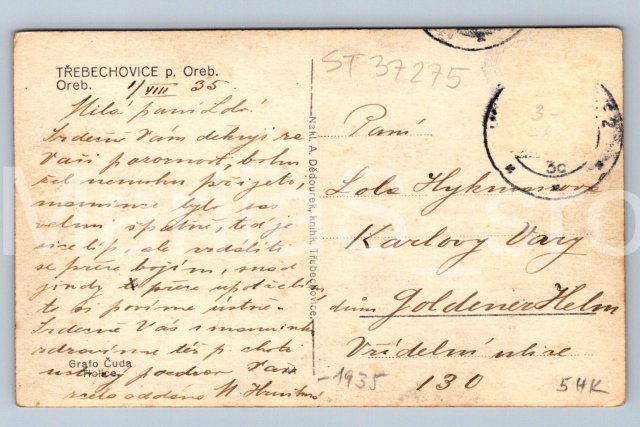 TŘEBECHOVICE p. Oreb.
Oreb. 1/VIII 35
Milá paní Lolo!
Srdečně Vám děkuji za
Vaši pozornost, bohu
žel nemohu přijeti,
mamince bylo zas
velmi špatně, teď je
sice líp, ale vzdáliti
se přece bojím, snad
jindy přece
to si povíme ústně.
Srdečně Vás s maminkou
zdravíme též p. choti
pozdrav Vaše
zcela oddaná
Grafo Čuda
Holice
Nákl. A. Dědourek, knihk. Třebechovice.
ST 37275
Paní
Lola
Karlovy Vary
dům Goldener Helm
Vřídelní ulice
130
-1935
5HK
3c